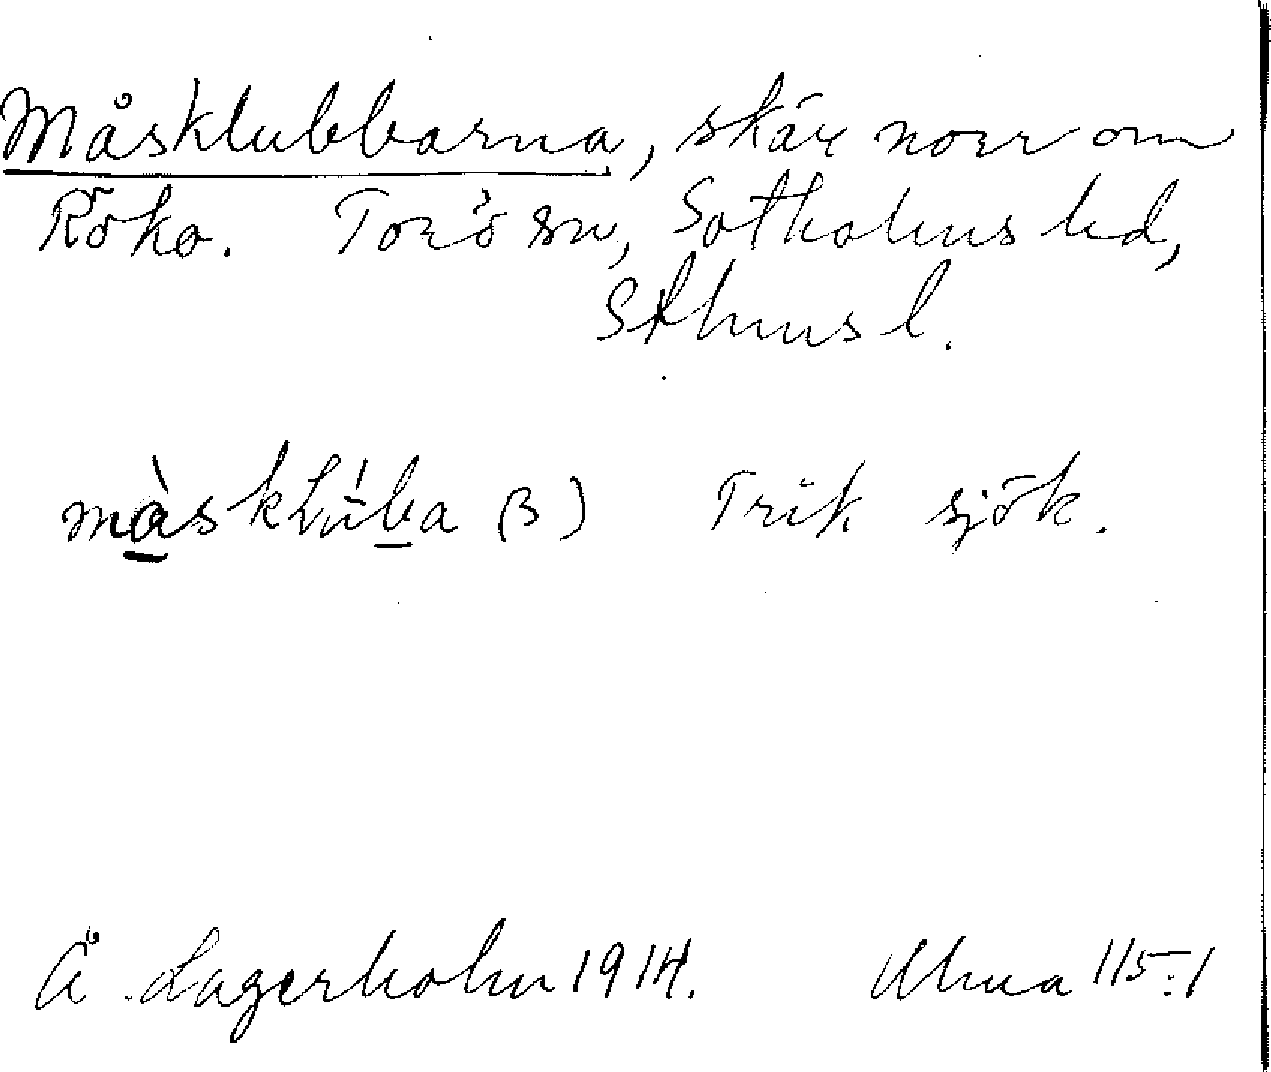 Måsklubbarna, skär norr om
Röko. Torö sn, Sotholms hd,
Sthms l.
màskLúba (3) Trik sjök.
Å. Lagerholm 1914. Uhua 115:1